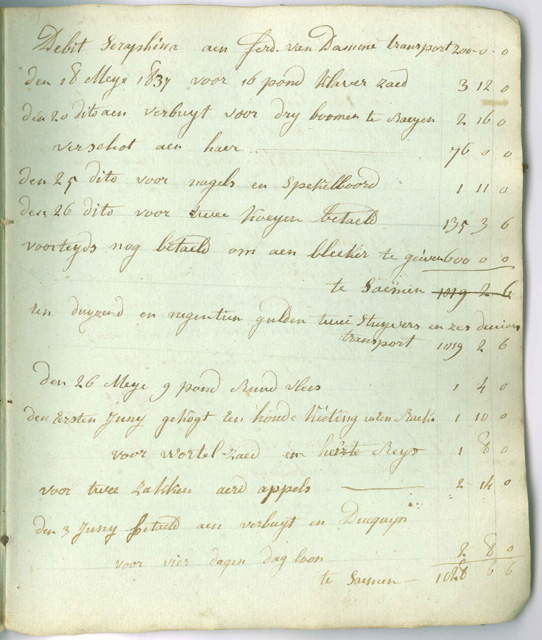 Debit Seraphina aen ferd. van Damme transport 200-0-0
den 18 Meye 1837 voor 16 pond klaver zaed 3 12 0
den 20 dito aen verbuyt voor dry boomen te Raeyen 2 16 0
verschot aen haer 76 0 0
den 25 dito voor nagels en spekelboord 1 11 0
den 26 dito voor twee koeyen betaeld 135 3 6
voorteyds nog betaeld om aen bleeker te geéven 600 0 0
te saemen 1019 2 6
en duyzend en negentien gulden twee stuyvers en zes deniers
transport 1019 2 6
den 26 Meye 9 pond Rund vlees 1 4 0
den eersten Juny gekogt een honde kéeting 1 10 0
voor wortel-zaed en Reys 1 8 0
voor twee zakken aerd appels 2-14 0
den 3 Juny betaeld aen verbuyt en
voor vier dagen dag loon 2 8 0
te saemen - 1028 6 6